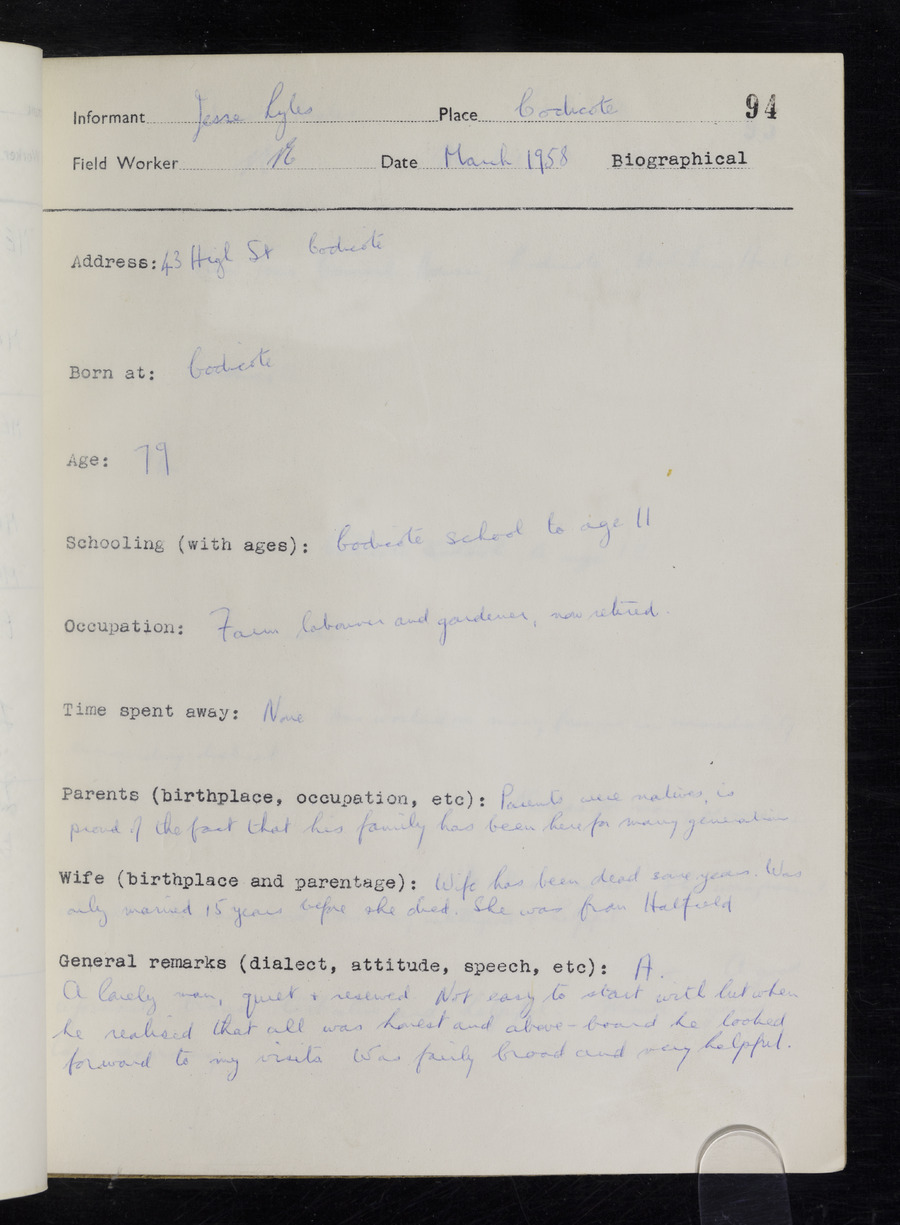 Informant Jesse Lyles Place Codicote 94
Field Worker Date March 1958 Biographical
Address: 43 High St Codicote
Born at: Codicote
Age: 79
Schooling (with ages): Codicote school to age 11
Occupation: Farm labourer and gardener, now retired.
Time spent away: None
Parents (birthplace, occupation, etc): Parents were natives, is
proud of the fact that his family has been here for many generations
Wife (birthplace and parentage): Wife has been dead some years. Was
only married 15 years before she died. She was from Hatfield
General remarks (dialect, attitude, speech, etc): A.
A lonely man, quiet & reserved Not easy to start with but when
he realised that all was honest and above-board he looked
forward to my visits Was fairly broad and very helpful.